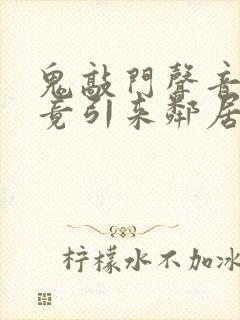 鬼敲門聲音
竟引来鄰居
柠檬水不加冰